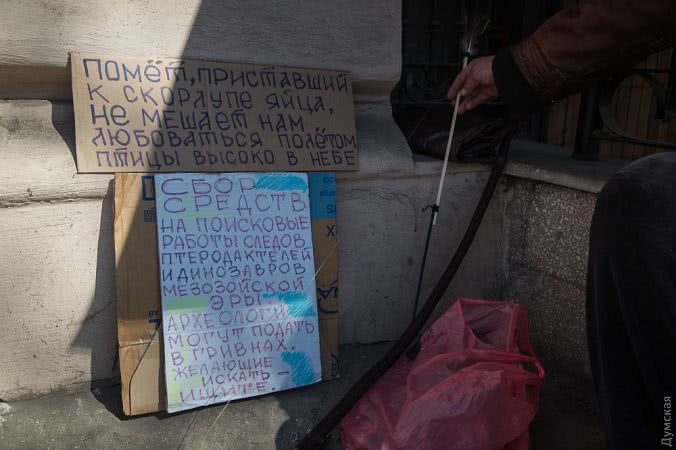 ПОМЁТ, ПРИСТАВШИЙ
К СКОРЛУПЕ ЯЙЦА,
НЕ МЕШАЕТ НАМ
ЛЮБОВАТЬСЯ ПОЛЁТОМ
ПТИЦЫ ВЫСОКО В НЕБЕ
СБОР
СРЕДСТВ
НА ПОИСКОВЫЕ
РАБОТЫ СЛЕДОВ
ПТЕРОДАКТЕЛЕЙ
И ДИНОЗАВРОВ
МЕЗОЗОЙСКОЙ
ЭРЫ.
АРХЕОЛОГИ
МОГУТ ПОДАТЬ
В ГРИВНАХ.
ЖЕЛАЮЩИЕ
ИСКАТЬ –
ИЩИТЕ.
Думская